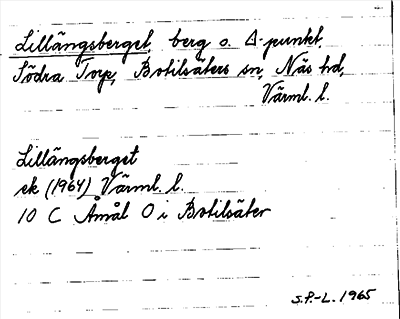 Lillängsberget, berg o. Δ-punkt,
Södra Torp, Botilsäters sn, Näs hd,
Värml. l.
Lillängsberget
ek (1964) Värml. l.
10 C Åmål O i Botilsäter
S.P.-L. 1965